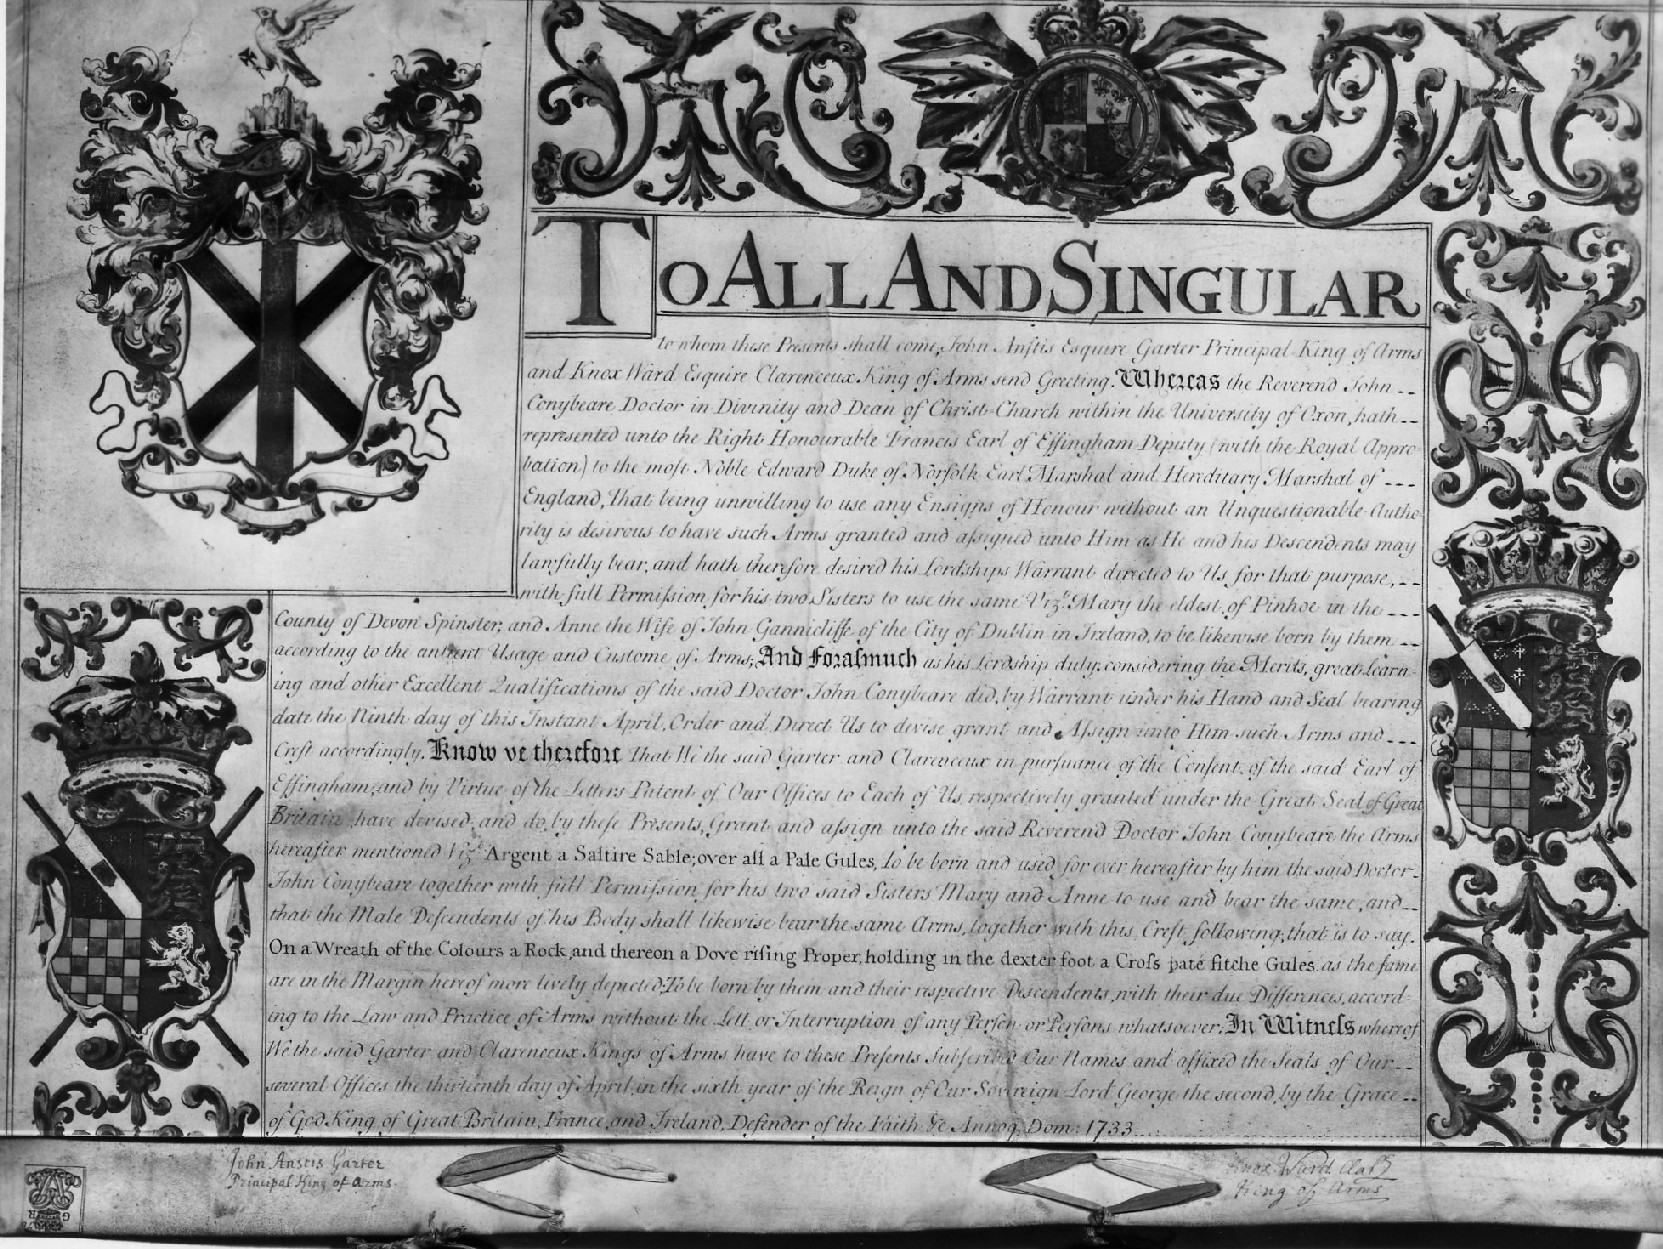 TO ALL AND SINGULAR
to whom these Presents shall come, John Anstis Esquire Garter Principal King of Arms
and Knox Ward Esquire Clarenceux King of Arms send Greeting. Whereas the Reverend John
Conybeare Doctor in Divinity and Dean of Christ-Church within the University of Oxon, hath
represented unto the Right Honourable Francis Earl of Effingham Deputy (with the Royal Appro-
bation) to the most Noble Edward Duke of Norfolk Earl Marshal and Hereditary Marshal of
England, That being unwilling to use any Ensigns of Honour without an Unquestionable Autho-
rity is desirous to have such Arms granted and aſsigned unto Him as He and his Descendents may
lawfully bear, and hath therefore desired his Lordships Warrant directed to Us, for that purpose,
with full Permiſsion for his two Sisters to use the same Vizt. Mary the eldest, of Pinhoe in the
County of Devon Spinster, and Anne the Wife of John Gannicliffe of the City of Dublin in Ireland, to be likewise born by them
according to the antient Usage and Custome of Arms; And Foraſmuch as his Lordship duly considering the Merits, great Learn-
ing and other Excellent Qualifications of the said Doctor John Conybeare did, by Warrant under his Hand and Seal bearing
date the Ninth day of this Instant April, Order and Direct Us to devise grant and Aſsign unto Him such Arms and
Creſt accordingly. Know ye therefore That We the said Garter and Clarenceux in purſuance of the Conſent of the said Earl of
Effingham, and by Virtue of the Letters Patent of Our Offices to Each of Us respectively granted under the Great Seal of Great
Britain have devised and do, by theſe Presents, Grant and aſsign unto the said Reverend Doctor John Conybeare the Arms
hereafter mentioned Vizt. Argent a Saltire Sable; over all a Pale Gules, To be born and used for ever hereafter by him the said Doctor
John Conybeare together with full Permiſsion for his two said Sisters Mary and Anne to use and bear the same, and
that the Male Deſcendents of his Body shall likewise bear the same Arms, together with this Creſt following, that is to say.
On a Wreath of the Colours a Rock, and thereon a Dove riſing Proper, holding in the dexter foot a Croſs paté fitche Gules. as the ſame
are in the Margin hereof more lively depicted, To be born by them and their respective Descendents, with their due Differences, accord-
ing to the Law and Practice of Arms without the Lett or Interruption of any Perſon or Perſons whatsoever. In Witneſs whereof
We the said Garter and Clarenceux Kings of Arms have to these Preſents Subſcribed Our Names and affixed the Seals of Our
several Offices the thirteenth day of April, in the sixth year of the Reign of Our Sovereign Lord George the second, by the Grace
of God King of Great Britain, France, and Ireland, Defender of the Faith &c Annoq. Dom: 1733
John Anstis Garter
Principal King of Arms
Knox Ward
King of Arms